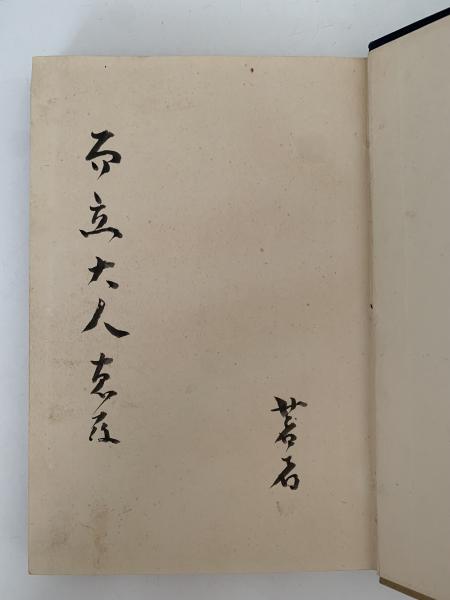 著者
而立大人恵存